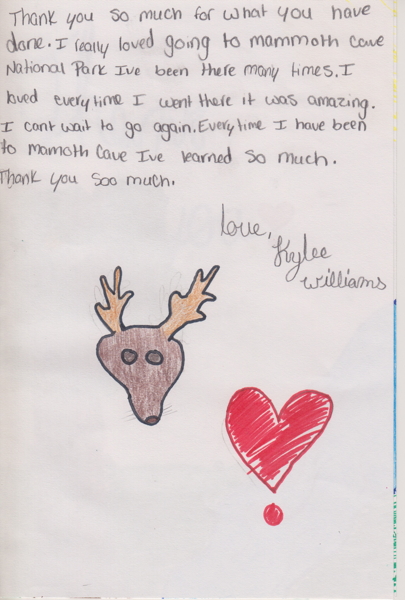 Thank you so much for what you have
done. I really loved going to mammoth cave
National Park I've been there many times. I
loved everytime I went there it was amazing.
I cant wait to go again. Everytime I have been
to mamoth cave I've learned so much.
Thank you soo much.
love,
Kylee
williams